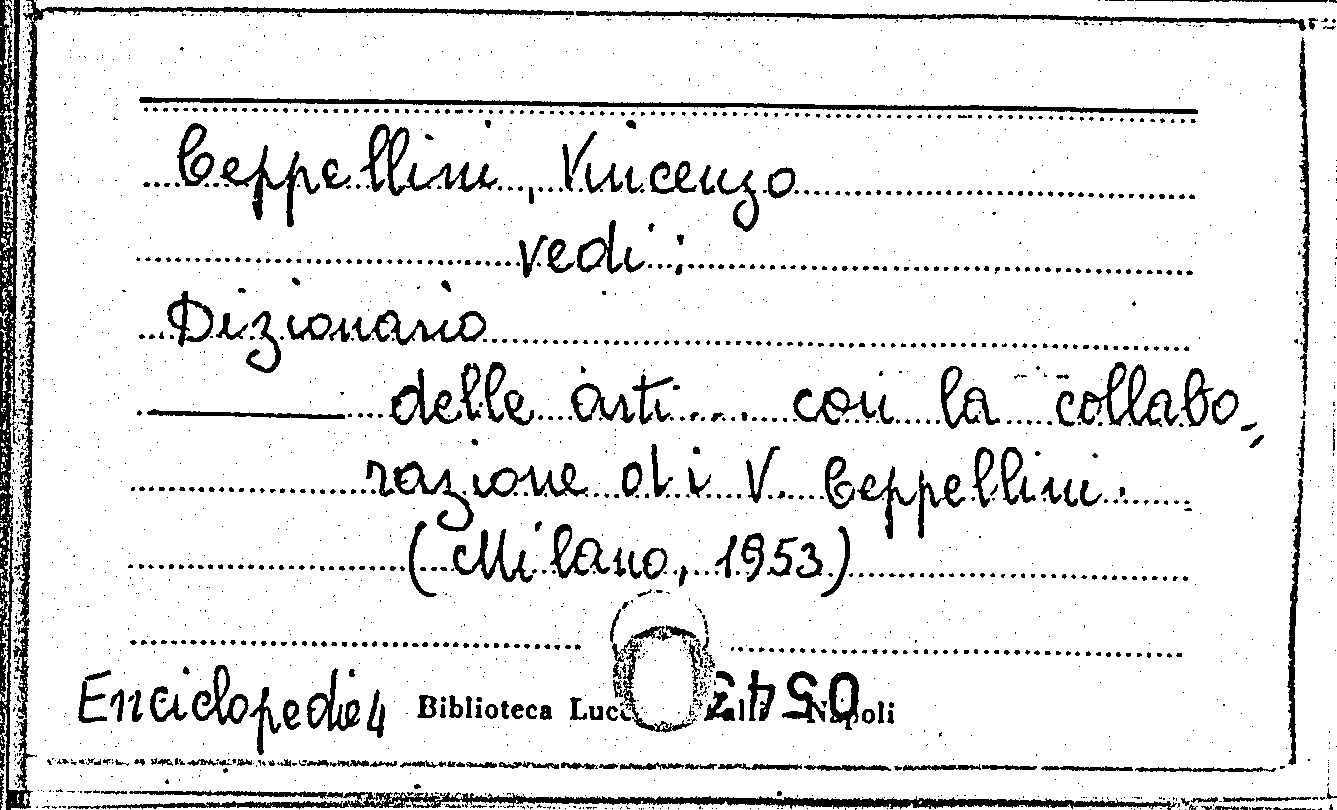 Ceppellini, Vincenzo
vedi:
Dizionario
delle arti.... con la collabo=
razione di V. Ceppellini.
(Milano, 1953)
Enciclopedie 4 Biblioteca Napoli